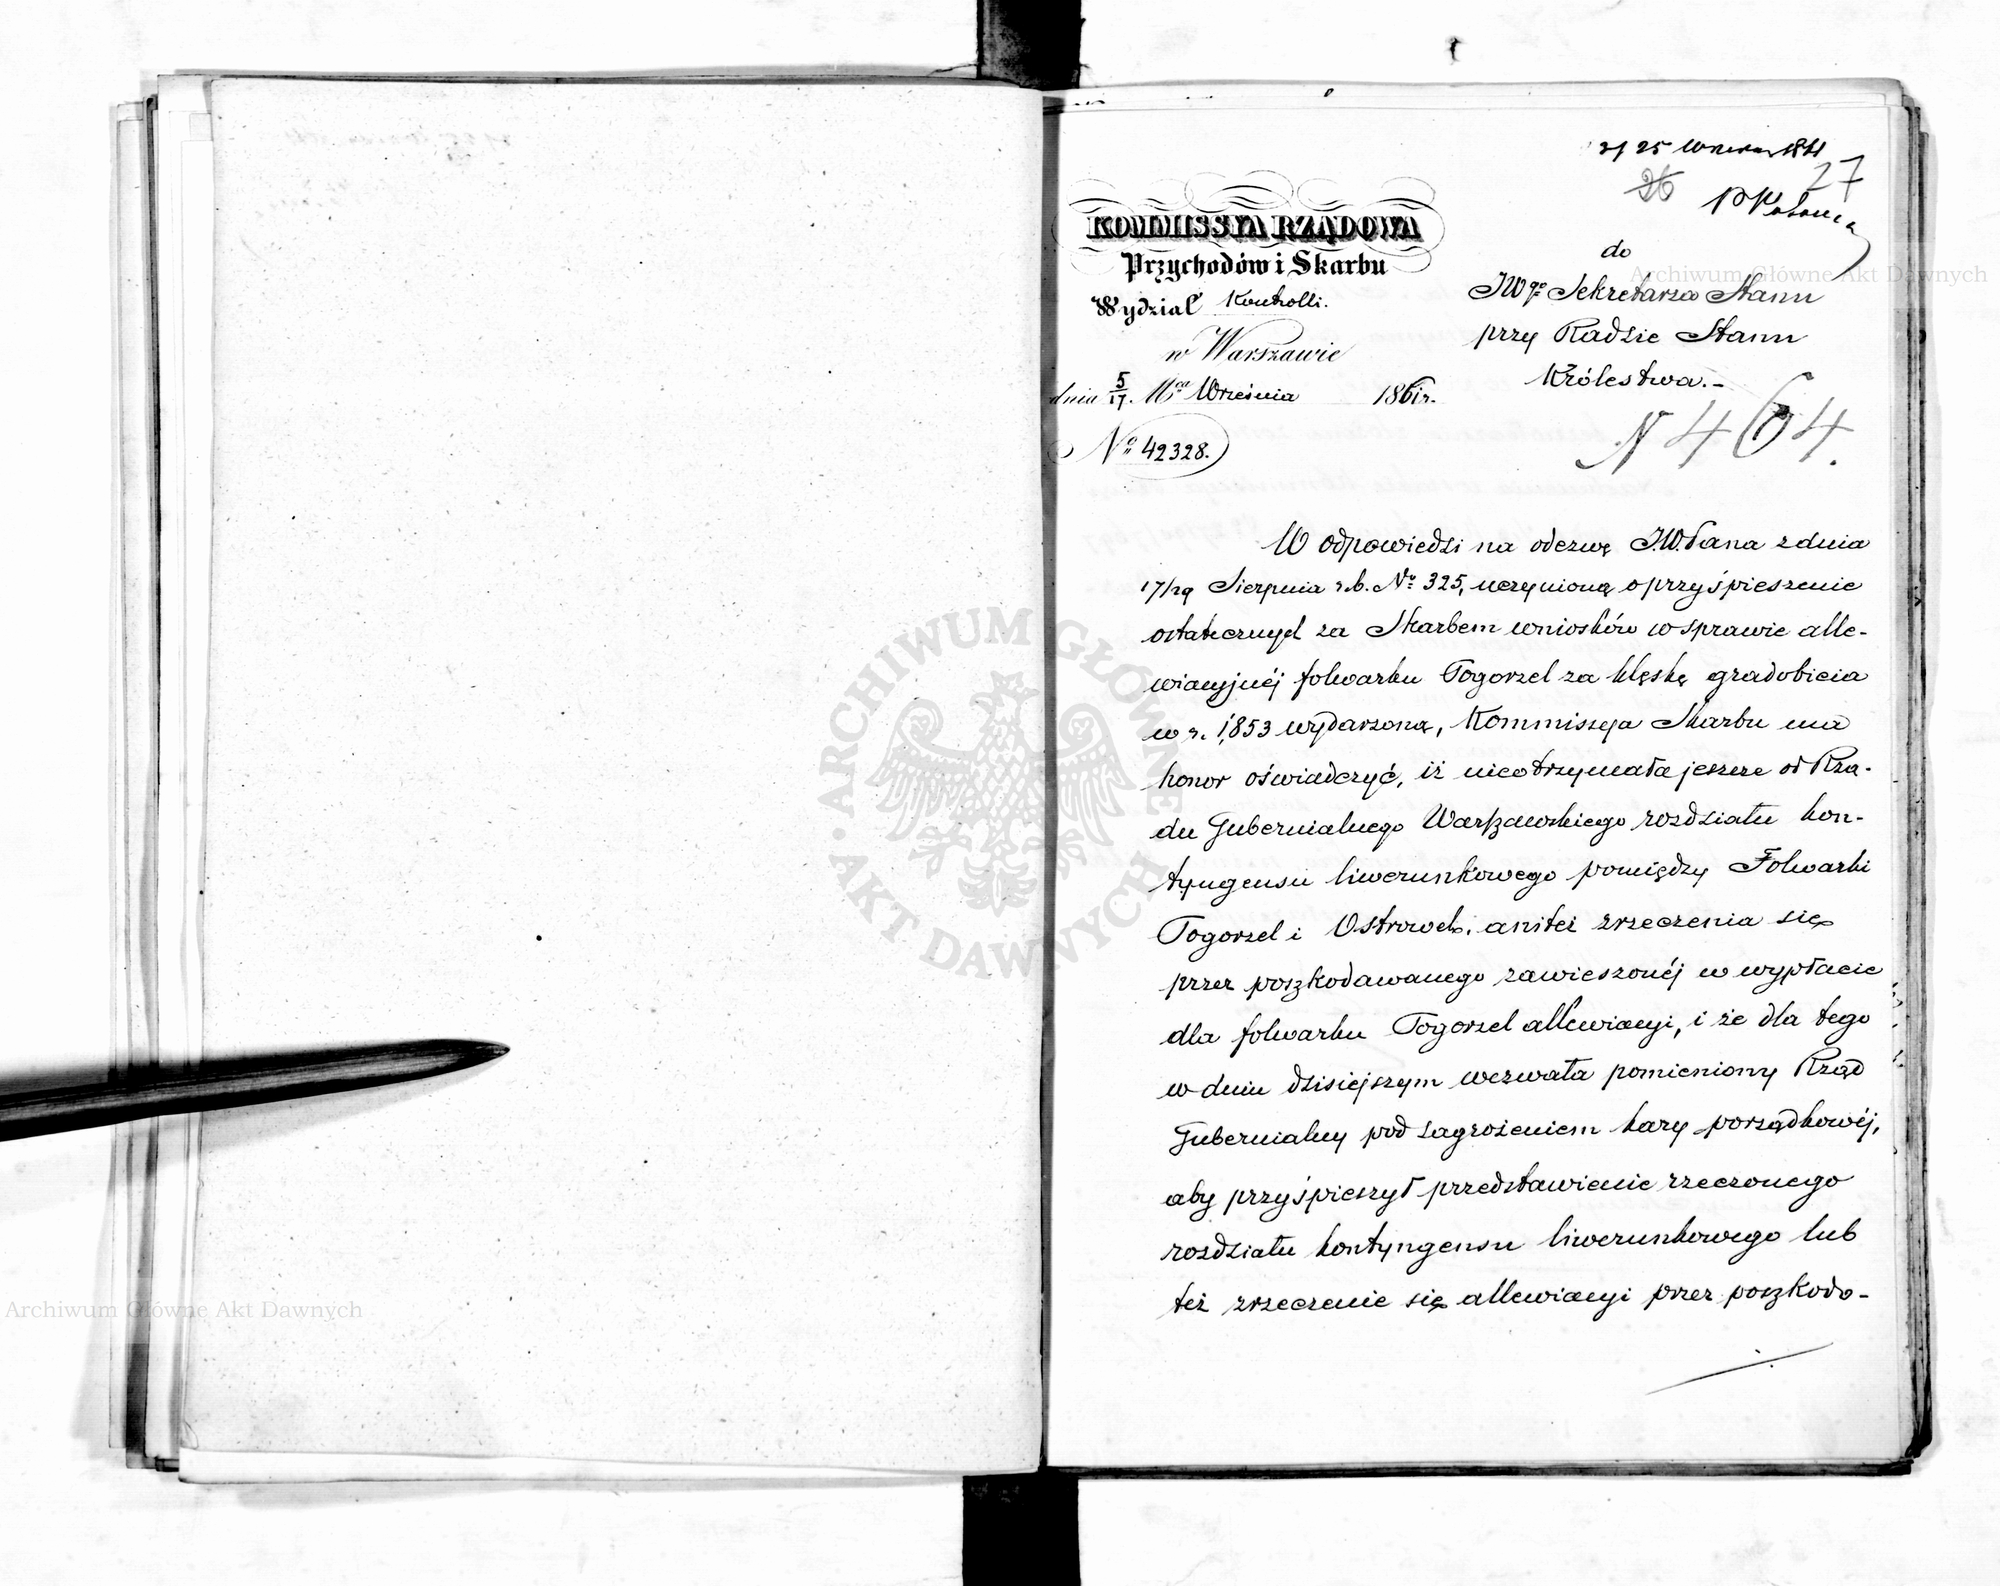 25 Września 1861
27
26
KOMMISSYA RZĄDOWA
Przychodów i Skarbu
Wydział Kontrolli.
w Warszawie
dnia 5/17. Mca Września 1861 r.
No 42328.
do
JWgo Sekretarza Stanu
przy Radzie Stanu
Królestwa.-
N 464.
W odpowiedzi na odezwę J.W.Pana z dnia
17/29 Sierpnia r.b. No 325, uczynioną o przyśpieszenie
ostatecznych za Skarbem wniosków w sprawie alle-
wiacyjnéj folwarku Pogorzel za klęskę gradobicia
w r. 1853 wydarzoną, Kommissya Skarbu ma
honor oświadczyć, iż nieotrzymała jeszcze od Rzą-
du Gubernialnego Warszawskiego rozdziału kon-
tyngensu liwerunkowego pomiędzy Folwarki
Pogorzel i Ostrowek, aniteż zrzeczenia się
przez poszkodowanego zawieszonéj w wypłacie
dla folwarku Pogorzel allewiacyi, i że dla tego
w dniu dzisiejszym wezwała pomieniony Rząd
Gubernialny pod zagrożeniem kary porządkowéj,
aby przyśpieszył przedstawienie rzeczonego
rozdziału kontyngensu liwerunkowego lub
też zrzeczenie się allewiacyi przez poszkodo-
Archiwum Główne Akt Dawnych
Archiwum Główne Akt Dawnych
ARCHIWUM GŁÓWNE AKT DAWNYCH